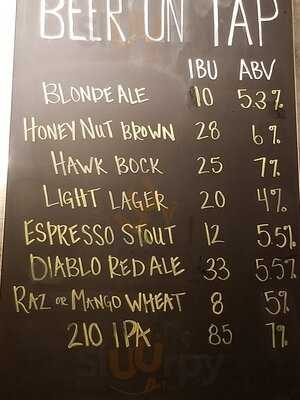 BEER ON TAP
IBU ABV
BLONDE ALE 10 5.3%
HONEY NUT BROWN 28 6%
HAWK BOCK 25 7%
LIGHT LAGER 20 4%
ESPRESSO STOUT 12 5.5%
DIABLO RED ALE 33 5.5%
RAZ OR MANGO WHEAT 8 5%
210 IPA 85 7%
sluurpy